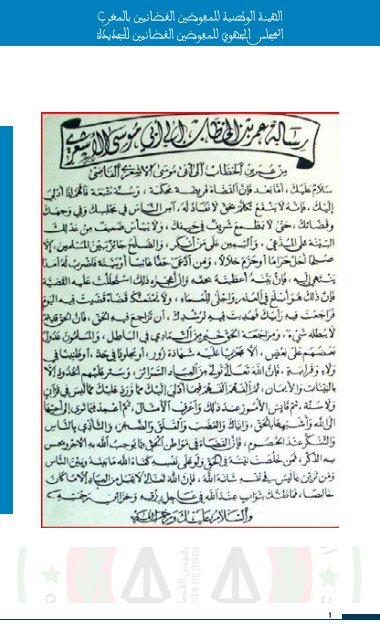 الهيئة الوطنية للمفوضين القضائيين بالمغرب
المجلس الجهوي للمفوضين القضائيين للجديدة
رسالة عمر بن الخطاب إلى أبي موسى الأشعري
من عمر بن الخطاب إلى أبي موسى الأشعري القاضي
سلام عليك، أما بعد فإن القضاء فريضة محكمة، وسنة متبعة فافهم إذا أدلي
إليك، فإنه لا ينفع تكلم بحق لا نفاذ له، آس الناس في مجلسك وفي وجهك
وقضائك، حتى لا يطمع شريف في حيفك، ولا ييأس ضعيف من عدلك
البينة على المدعي، واليمين على من أنكر، والصلح جائز بين المسلمين، إلا
صلحا أحل حراما أو حرم حلالا، ومن ادعى حقا غائبا أو بينة فاضرب له أمدا
ينتهي إليه، فإن بينه أعطيته بحقه وإن أعجزه ذلك استحللت عليه القضية
فإن ذلك هو أبلغ في العذر وأجلى للعماء، ولا يمنعنك قضاء قضيت فيه اليوم
فراجعت فيه رأيك فهديت فيه لرشدك، أن تراجع فيه الحق، فإن الحق قديم
لا يبطله شيء، ومراجعة الحق خير من التمادي في الباطل، والمسلمون عدول
بعضهم على بعض، إلا مجربا عليه شهادة زور، أو مجلودا في حد، أو ظنينا في
ولاء وقرابة، فإن الله تعالى تولى من العباد السرائر، وستر عليهم الحدود إلا
بالبينات والأيمان، ثم الفهم الفهم فيما أدلي إليك مما ورد عليك مما ليس في قرآن
ولا سنة، ثم قايس الأمور عند ذلك واعرف الأمثال، ثم اعمد فيما ترى إلى أحبها
إلى الله وأشبهها بالحق، وإياك والغضب والقلق والضجر، والتأذي بالناس
والتنكر عند الخصوم، فإن القضاء في مواطن الحق مما يوجب الله به الأجر ويحسن
به الذكر، فمن خلصت نيته في الحق ولو على نفسه كفاه الله ما بينه وبين الناس
ومن تزين بما ليس في نفسه شانه الله، فإن الله تعالى لا يقبل من العباد إلا ما كان
خالصا، فما ظنك بثواب عند الله في عاجل رزقه وخزائن رحمته
والسلام عليك ورحمة الله
1